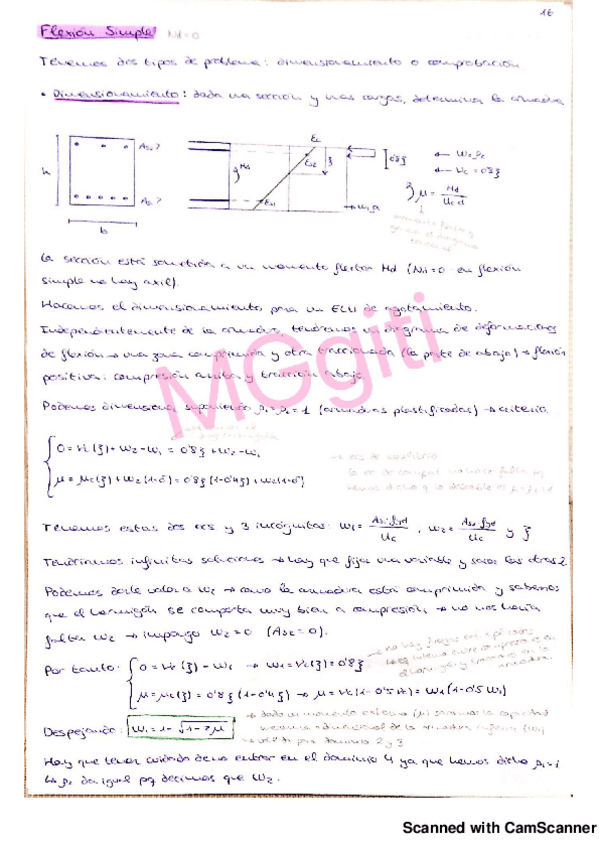 16
Flexión Simple Nd=0
Tenemos dos tipos de problema: dimensionamiento o comprobación.
• Dimensionamiento: dada una sección y unas cargas, determina la armadura
As2?
As1?
h
b
Md
εc
εs2
εs1
ξ
0'8ξ
← W2ρ2
← Vc = 0'8ξ
μ = Md / Uc d
→ W1ρ1
momento flector
La sección está sometida a un momento flector Md (Nd=0 en flexión
simple no hay axil).
Hacemos el dimensionamiento para un ELU de agotamiento.
Independientemente de la armadura, tendremos un diagrama de deformaciones
de flexión → una zona comprimida y otra traccionada (la parte de abajo) → flexión
positiva: compresión arriba y tracción abajo.
MGgiti
Podemos dimensionar suponiendo ρ1=ρ2=1 (armaduras plastificadas) → criterio.
0 = Vc(ξ)+W2-W1 = 0'8ξ+W2-W1
→ ecs de equilibrio
μ = μc(ξ)+W2(1-δ) = 0'8ξ(1-0'4ξ)+W2(1-δ)
Tenemos estas dos ecs y 3 incógnitas: W1 = As1·fyd / Uc , W2 = As2·fyd / Uc y ξ
Tendríamos infinitas soluciones → hay que fijar una variable y sacar las otras 2.
Podemos darle valor a W2 → como la armadura está comprimida y sabemos
que el hormigón se comporta muy bien a compresión → no nos haría
falta W2 → impongo W2=0 (As2=0).
Por tanto: 0 = Vc(ξ)-W1 → W1=Vc(ξ)=0'8ξ
μ=μc(ξ)=0'8ξ(1-0'4ξ) → μ=Vc(1-0'5Vc)=W1(1-0'5W1)
Despejando: W1 = 1-√1-2μ
→ válida para dominio 2 y 3
Hay que tener cuidado de no entrar en el dominio 4 ya que hemos dicho ρ1=1
↳ ρ2 da igual pq decimos que W2.
Scanned with CamScanner